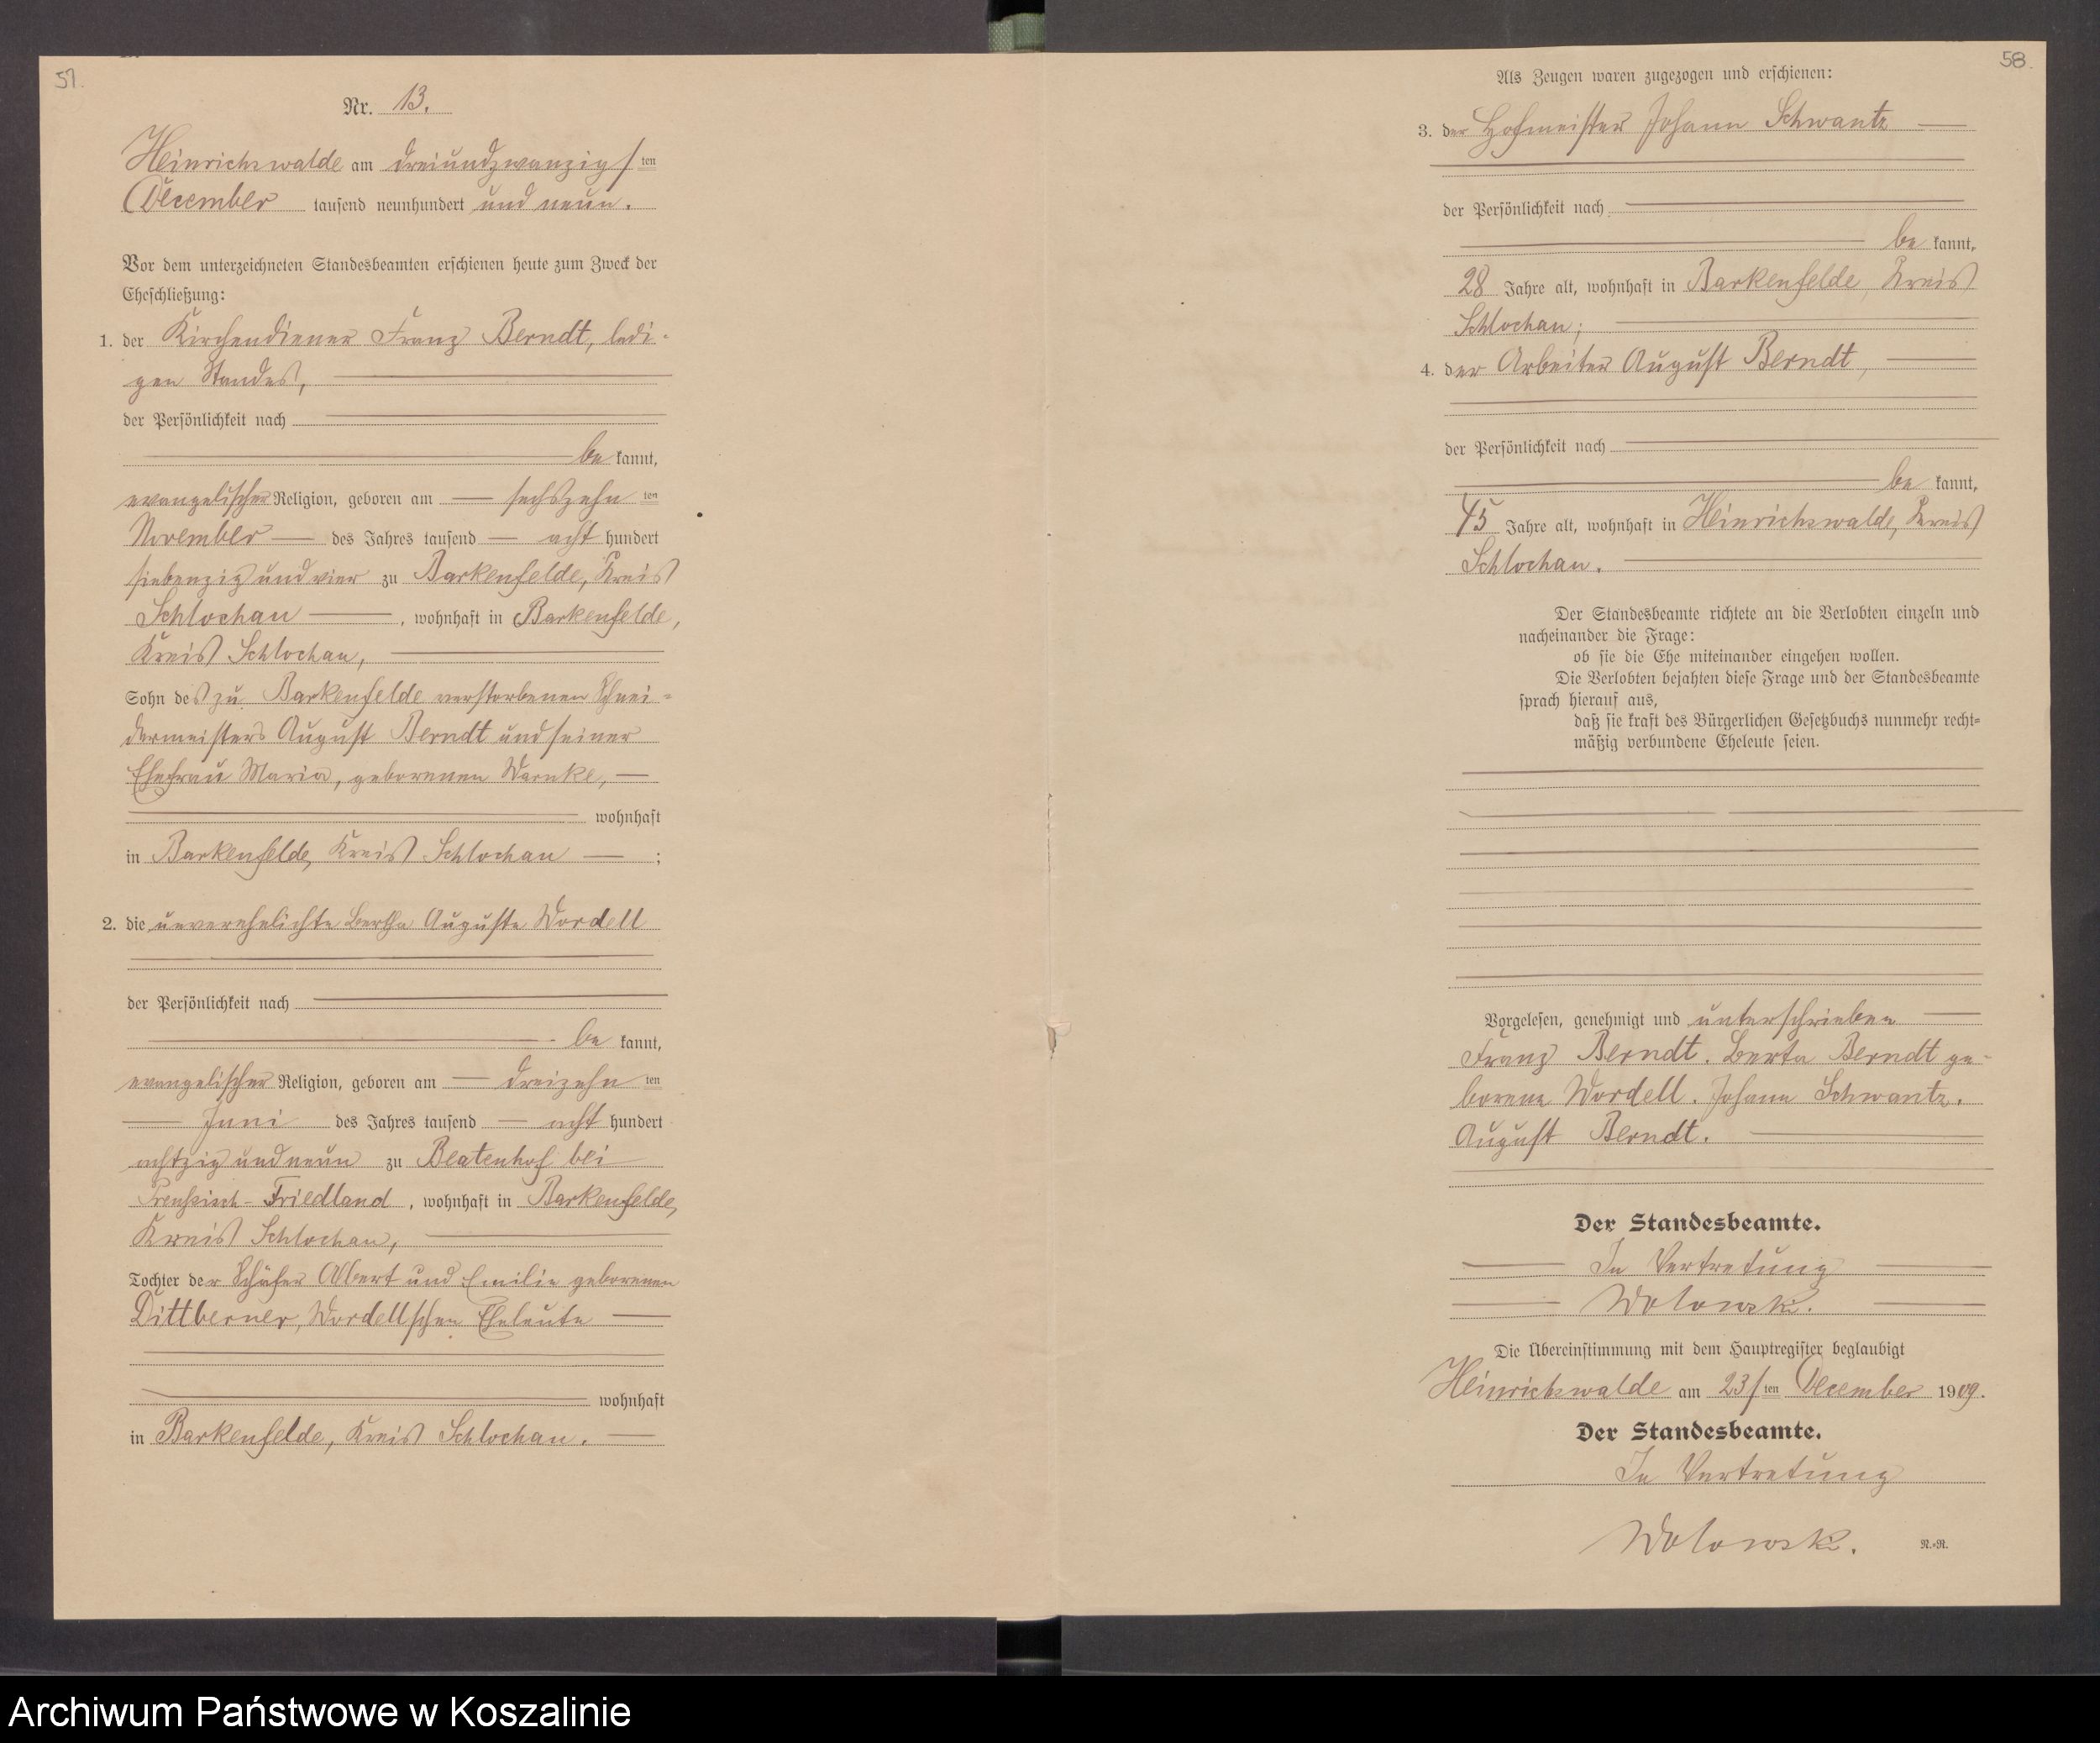 57.
Nr. 13.
Heinrichswalde am dreiundzwanzig/ten
December tausend neunhundert und neun.
Vor dem unterzeichneten Standesbeamten erschienen heute zum Zweck der
Eheschließung:
1. der Kirchendiener Franz Berndt, ledi-
gen Standes,
der Persönlichkeit nach
be kannt,
evangelischer Religion, geboren am sechszehn ten
November des Jahres tausend acht hundert
siebenzig und vier zu Barkenfelde, Kreis
Schlochau, wohnhaft in Barkenfelde,
Kreis Schlochau,
Sohn des zu Barkenfelde verstorbenen Schnei-
dermeisters August Berndt und seiner
Ehefrau Maria, geborenen Warnke,
wohnhaft
in Barkenfelde, Kreis Schlochau ;
2. die unverehelichte Bertha Auguste Wordell
der Persönlichkeit nach
be kannt,
evangelischer Religion, geboren am dreizehn ten
Juni des Jahres tausend acht hundert
achtzig und neun zu Beatenhof bei
Preußisch-Friedland, wohnhaft in Barkenfelde,
Kreis Schlochau,
Tochter der Schäfer Albert und Emilie geborenen
Dittberner, Wordellschen Eheleute
wohnhaft
in Barkenfelde, Kreis Schlochau.
58.
Als Zeugen waren zugezogen und erschienen:
3. der Hofmeister Johann Schwantz
der Persönlichkeit nach
be kannt,
28 Jahre alt, wohnhaft in Barkenfelde, Kreis
Schlochau;
4. der Arbeiter August Berndt,
der Persönlichkeit nach
be kannt,
45 Jahre alt, wohnhaft in Heinrichswalde, Kreis
Schlochau.
Der Standesbeamte richtete an die Verlobten einzeln und
nacheinander die Frage:
ob sie die Ehe miteinander eingehen wollen.
Die Verlobten bejahten diese Frage und der Standesbeamte
sprach hierauf aus,
daß sie kraft des Bürgerlichen Gesetzbuchs nunmehr recht-
mäßig verbundene Eheleute seien.
Vorgelesen, genehmigt und unterschrieben
Franz Berndt. Berta Berndt ge-
borene Wordell. Johann Schwantz.
August Berndt.
Der Standesbeamte.
In Vertretung
Wolowski.
Die Übereinstimmung mit dem Hauptregister beglaubigt
Heinrichswalde am 23/ten December 1909.
Der Standesbeamte.
In Vertretung
Wolowski.
R.-R.
Archiwum Państwowe w Koszalinie